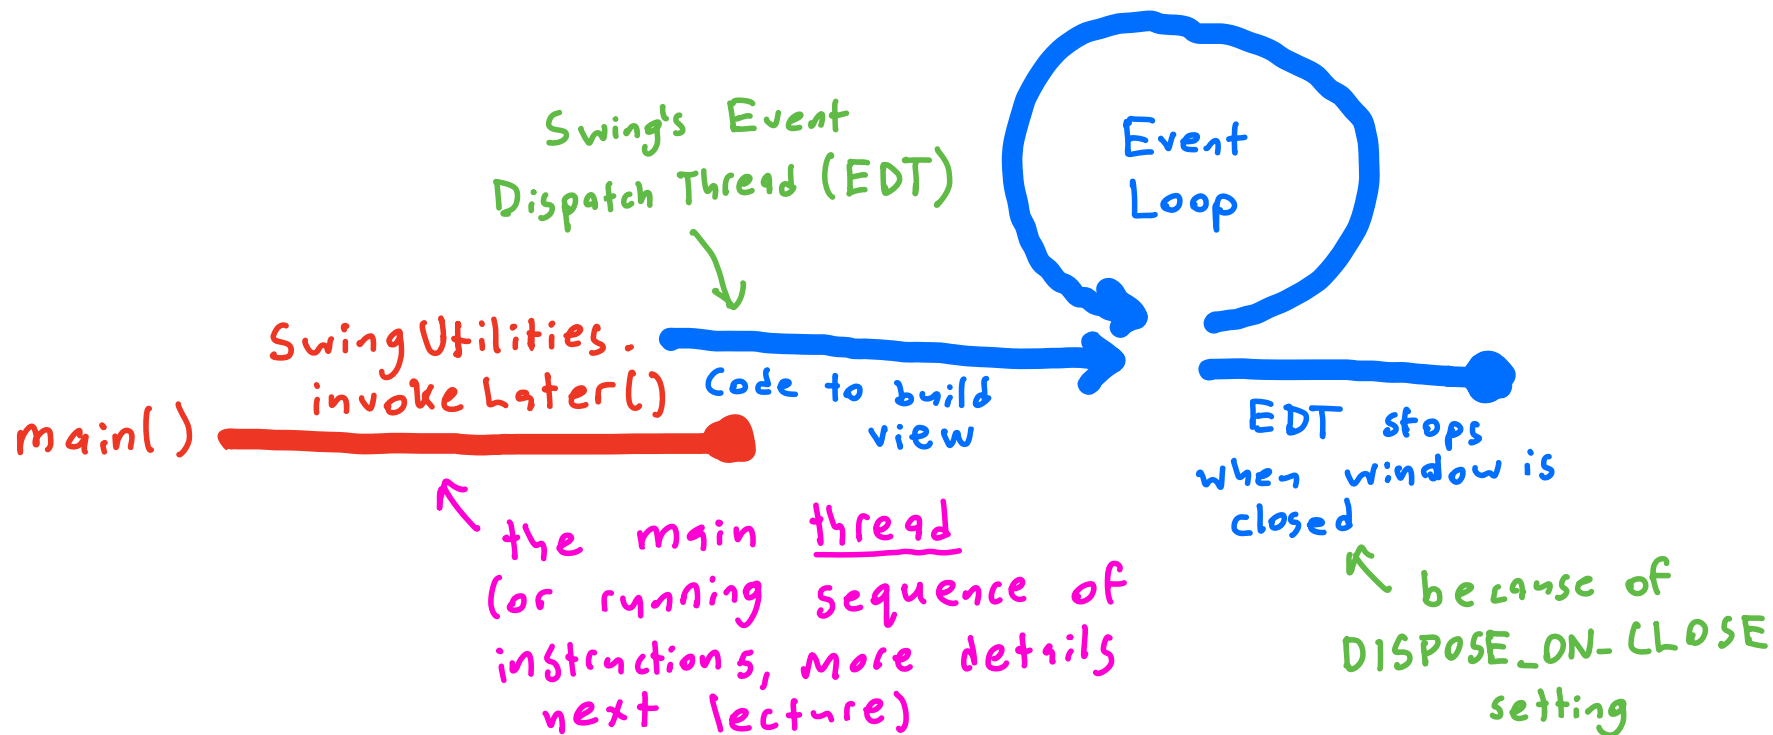 Swing's Event
Dispatch Thread (EDT)
Event
Loop
SwingUtilities.
invokeLater()
main()
Code to build
view
EDT stops
when window is
closed
the main thread
(or running sequence of
instructions, more details
next lecture)
because of
DISPOSE_ON_CLOSE
setting